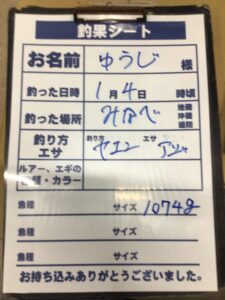 釣果シート
お名前 ゆうじ 様
釣った日時 1月4日 時頃
釣った場所 みなべ 地磯 沖磯 堤防
釣り方 エサ 釣り方 ヤエン エサ アジ
ルアー、エギの 種類・カラー
魚種 サイズ 1074g
魚種 サイズ
魚種 サイズ
お持ち込みありがとうございました。